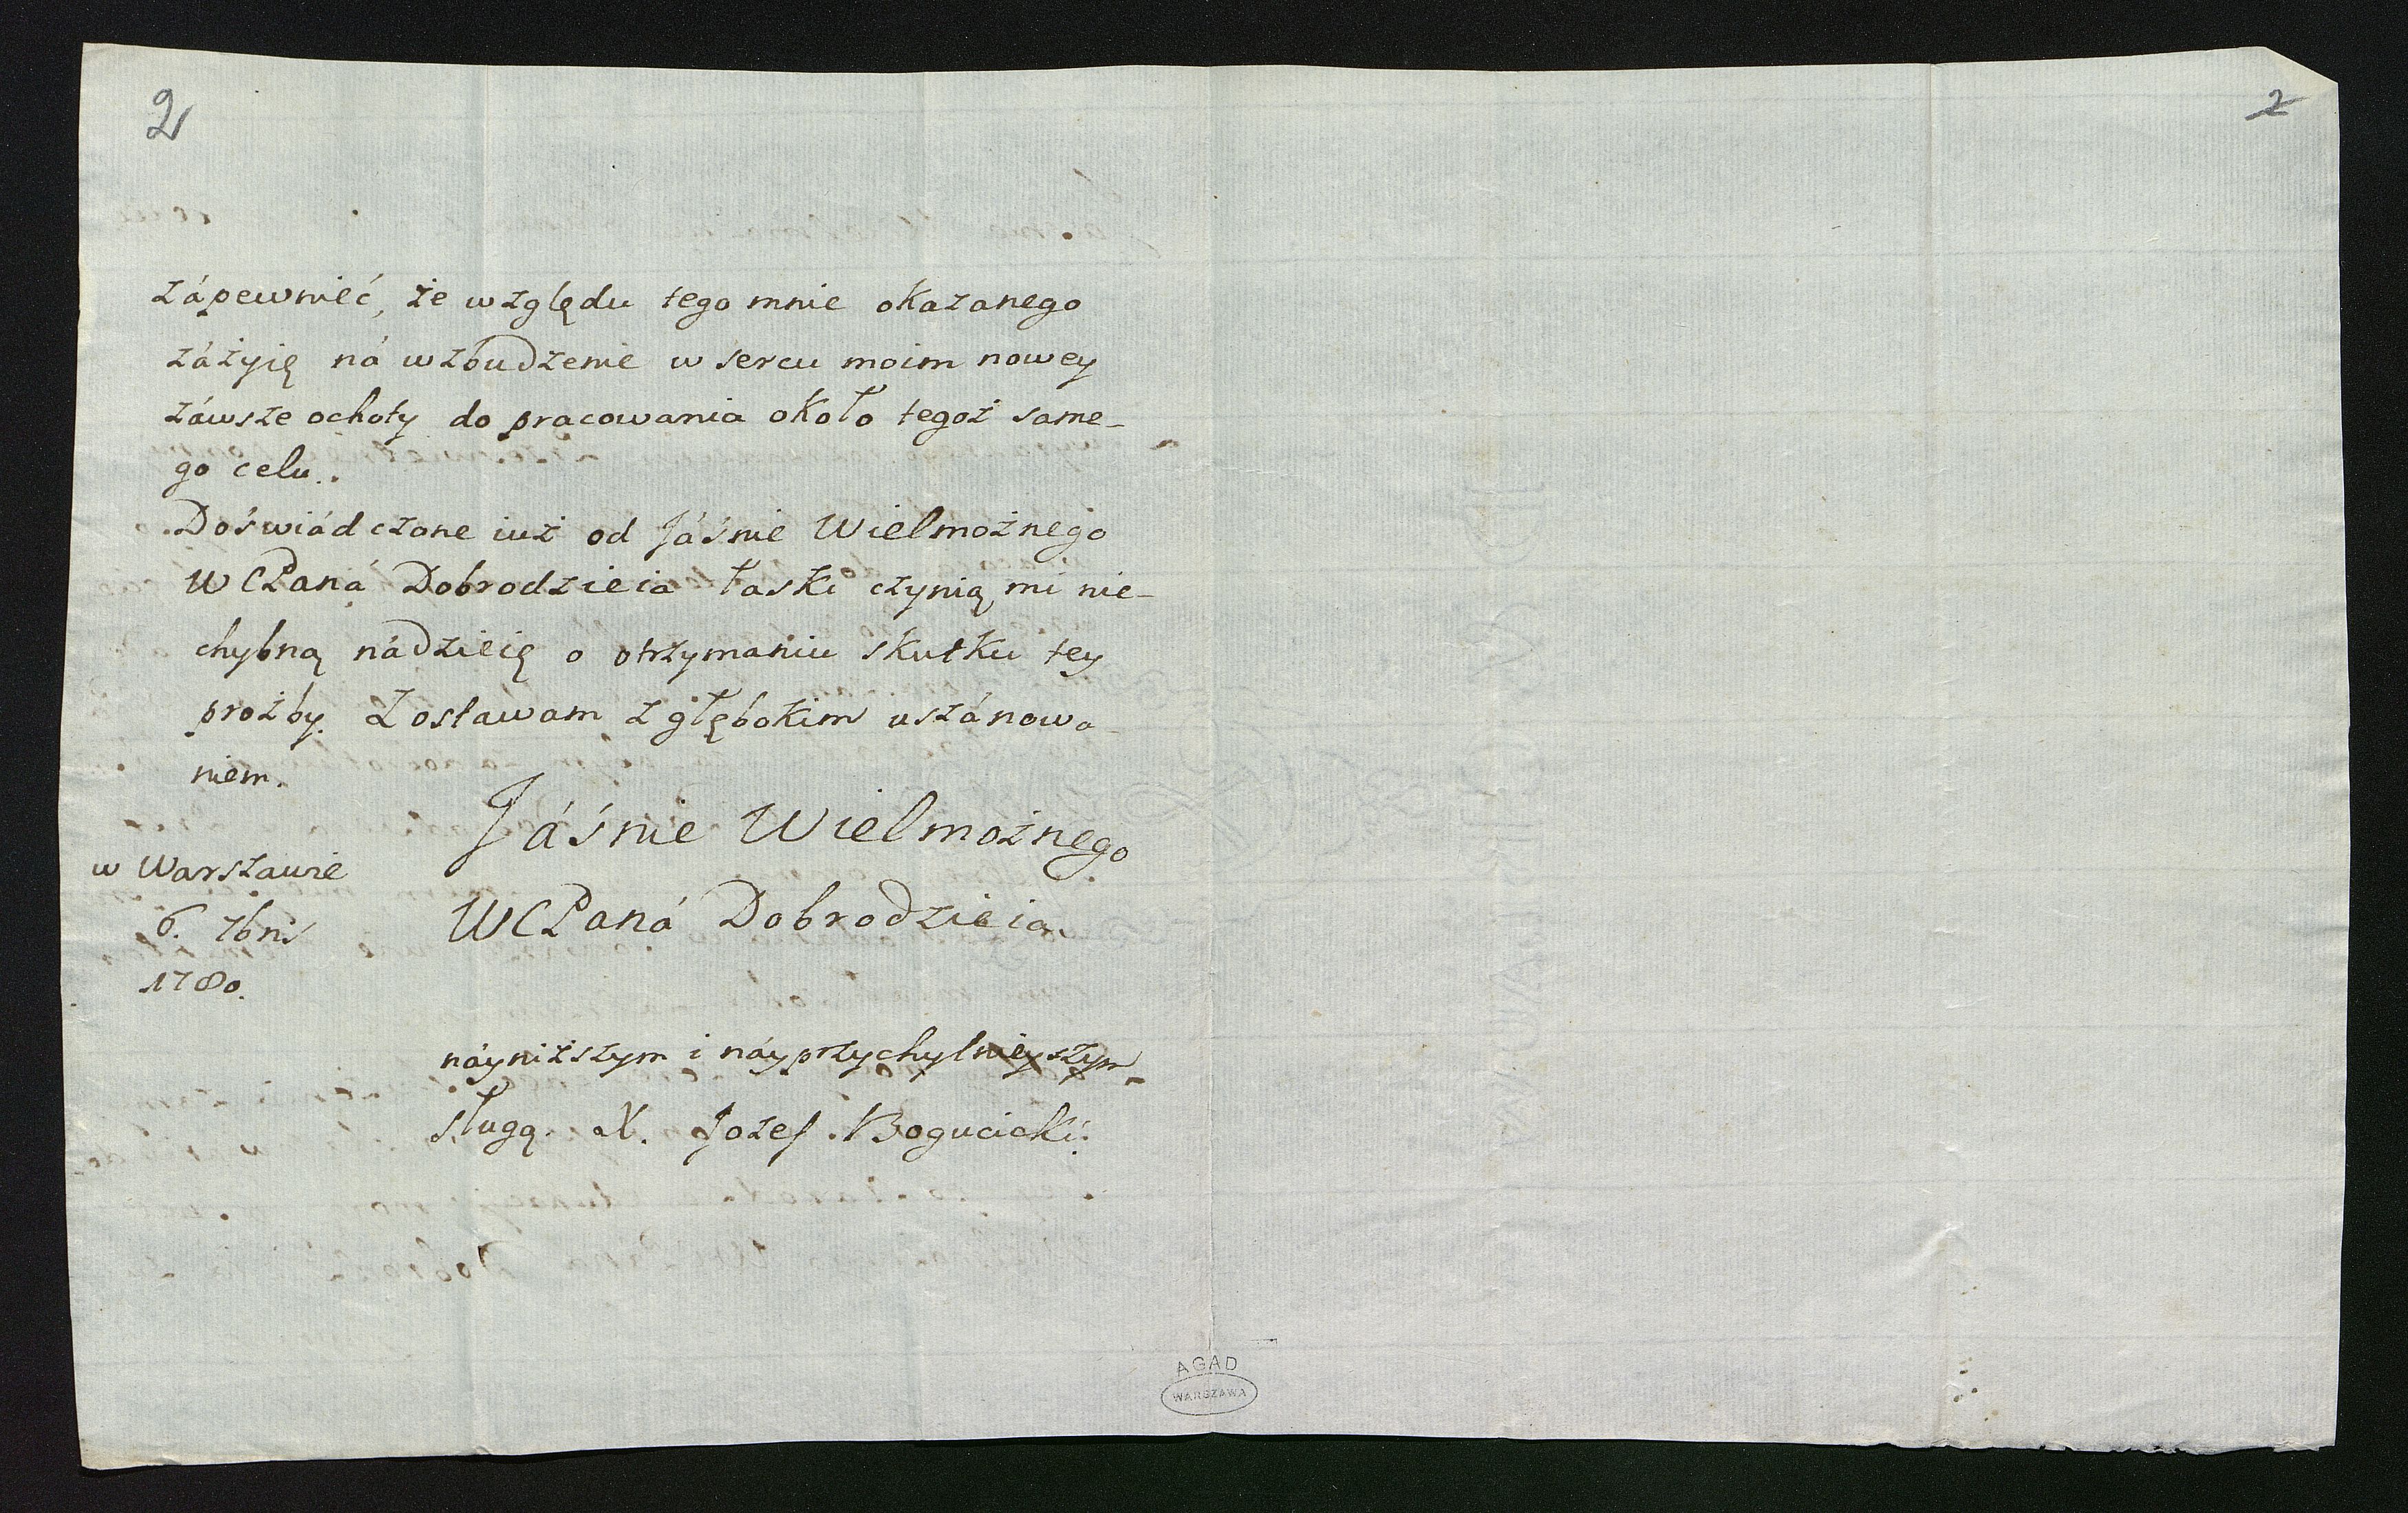 2
2
zápewnieć, że względu tego mnie okazanego
zázyię ná wzbudzenie w sercu moim nowey
záwsze ochoty do pracowania około tegoż same-
go celu.
Doświádczone iuż od Jáśnie Wielmożnego
WCPaná Dobrodzieia łaski czynią mi nie-
chybną nádzieię o otrzymaniu skutku tey
proźby. Zostawam z głębokim uszánowa
niem.
Jáśnie Wielmożnego
WCPaná Dobrodzieia.
w Warszawie
6. 7bris
1780.
náyniższym i náyprzychylnieyszym
sługą. X. Jozef Bogucicki.
AGAD
WARSZAWA